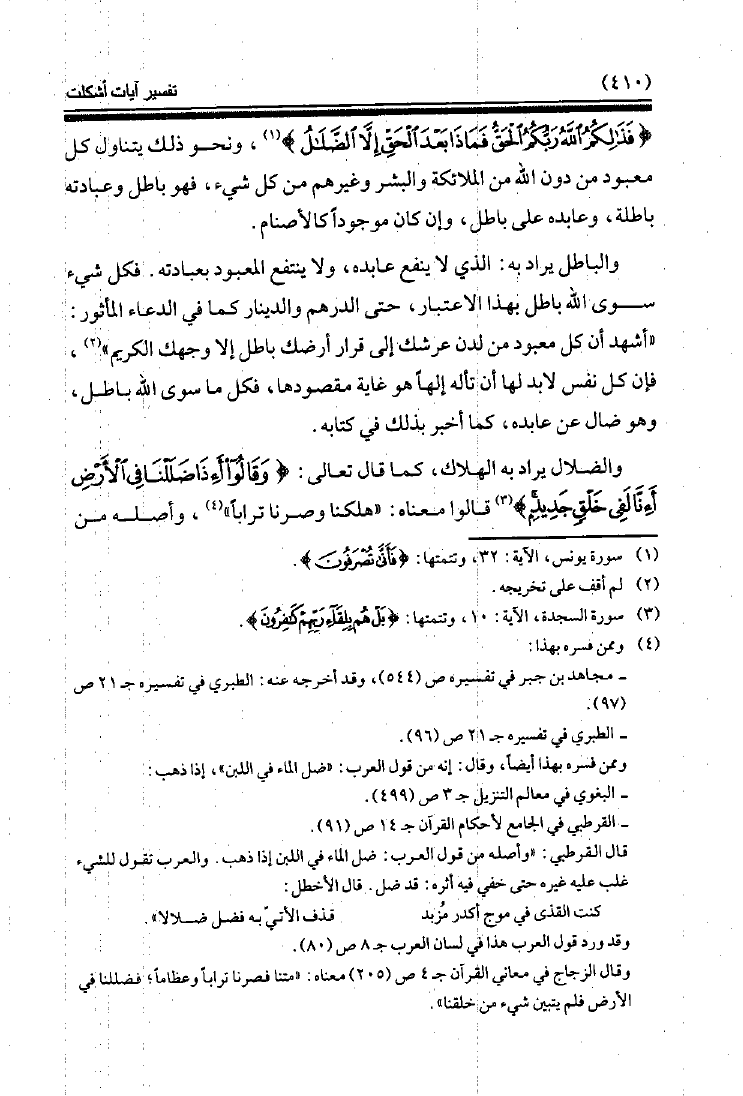 (٤١٠) تفسير آيات أشكلت
﴿ فَذَٰلِكُمُ ٱللَّهُ رَبُّكُمُ ٱلْحَقُّ فَمَاذَا بَعْدَ ٱلْحَقِّ إِلَّا ٱلضَّلَٰلُ ﴾(١) ، ونحـو ذلك يتناول كل
معبود من دون الله من الملائكة والبشر وغيرهم من كل شيء، فهو باطل وعبادته
باطلة، وعابده على باطل، وإن كان موجوداً كالأصنام.
والباطل يراد به: الذي لا ينفع عابده، ولا ينتفع المعبود بعبادته. فكل شيء
سـوى الله باطل بهذا الاعتبار، حتى الدرهم والدينار كما في الدعاء المأثور:
«أشهد أن كل معبود من لدن عرشك إلى قرار أرضك باطل إلا وجهك الكريم»(٢) ،
فإن كل نفس لابد لها أن تأله إلهاً هو غاية مقصودها، فكل ما سوى الله باطل،
وهو ضال عن عابده، كما أخبر بذلك في كتابه.
والضلال يراد به الهلاك، كما قال تعالى: ﴿ وَقَالُوٓا۟ أَءِذَا ضَلَلْنَا فِى ٱلْأَرْضِ
أَءِنَّا لَفِى خَلْقٍ جَدِيدٍۭ ﴾(٣) قالوا معناه: «هلكنا وصرنا تراباً»(٤) ، وأصله من
(١) سورة يونس، الآية: ٣٢، وتتمتها: ﴿فَأَنَّىٰ تُصْرَفُونَ﴾.
(٢) لم أقف على تخريجه.
(٣) سورة السجدة، الآية: ١٠، وتتمتها: ﴿بَلْ هُم بِلِقَآءِ رَبِّهِمْ كَٰفِرُونَ﴾.
(٤) وممن فسره بهذا:
ـ مجاهد بن جبر في تفسيره ص (٥٤٤)، وقد أخرجه عنه: الطبري في تفسيره جـ ٢١ ص
(٩٧).
ـ الطبري في تفسيره جـ ٢١ ص (٩٦).
وممن فسره بهذا أيضاً، وقال: إنه من قول العرب: «ضل الماء في اللبن»، إذا ذهب:
ـ البغوي في معالم التنزيل جـ ٣ ص (٤٩٩).
ـ القرطبي في الجامع لأحكام القرآن جـ ١٤ ص (٩١).
قال القرطبي: «وأصله من قول العرب: ضل الماء في اللبن إذا ذهب. والعرب تقول للشيء
غلب عليه غيره حتى خفي فيه أثره: قد ضل. قال الأخطل:
كنت القذى في موج أكدر مُزبد قذف الأتيّ به فضل ضـلالا».
وقد ورد قول العرب هذا في لسان العرب جـ ٨ ص (٨٠).
وقال الزجاج في معاني القرآن جـ ٤ ص (٢٠٥) معناه: «متنا فصرنا تراباً وعظاماً؛ فضللنا في
الأرض فلم يتبين شيء من خلقنا».